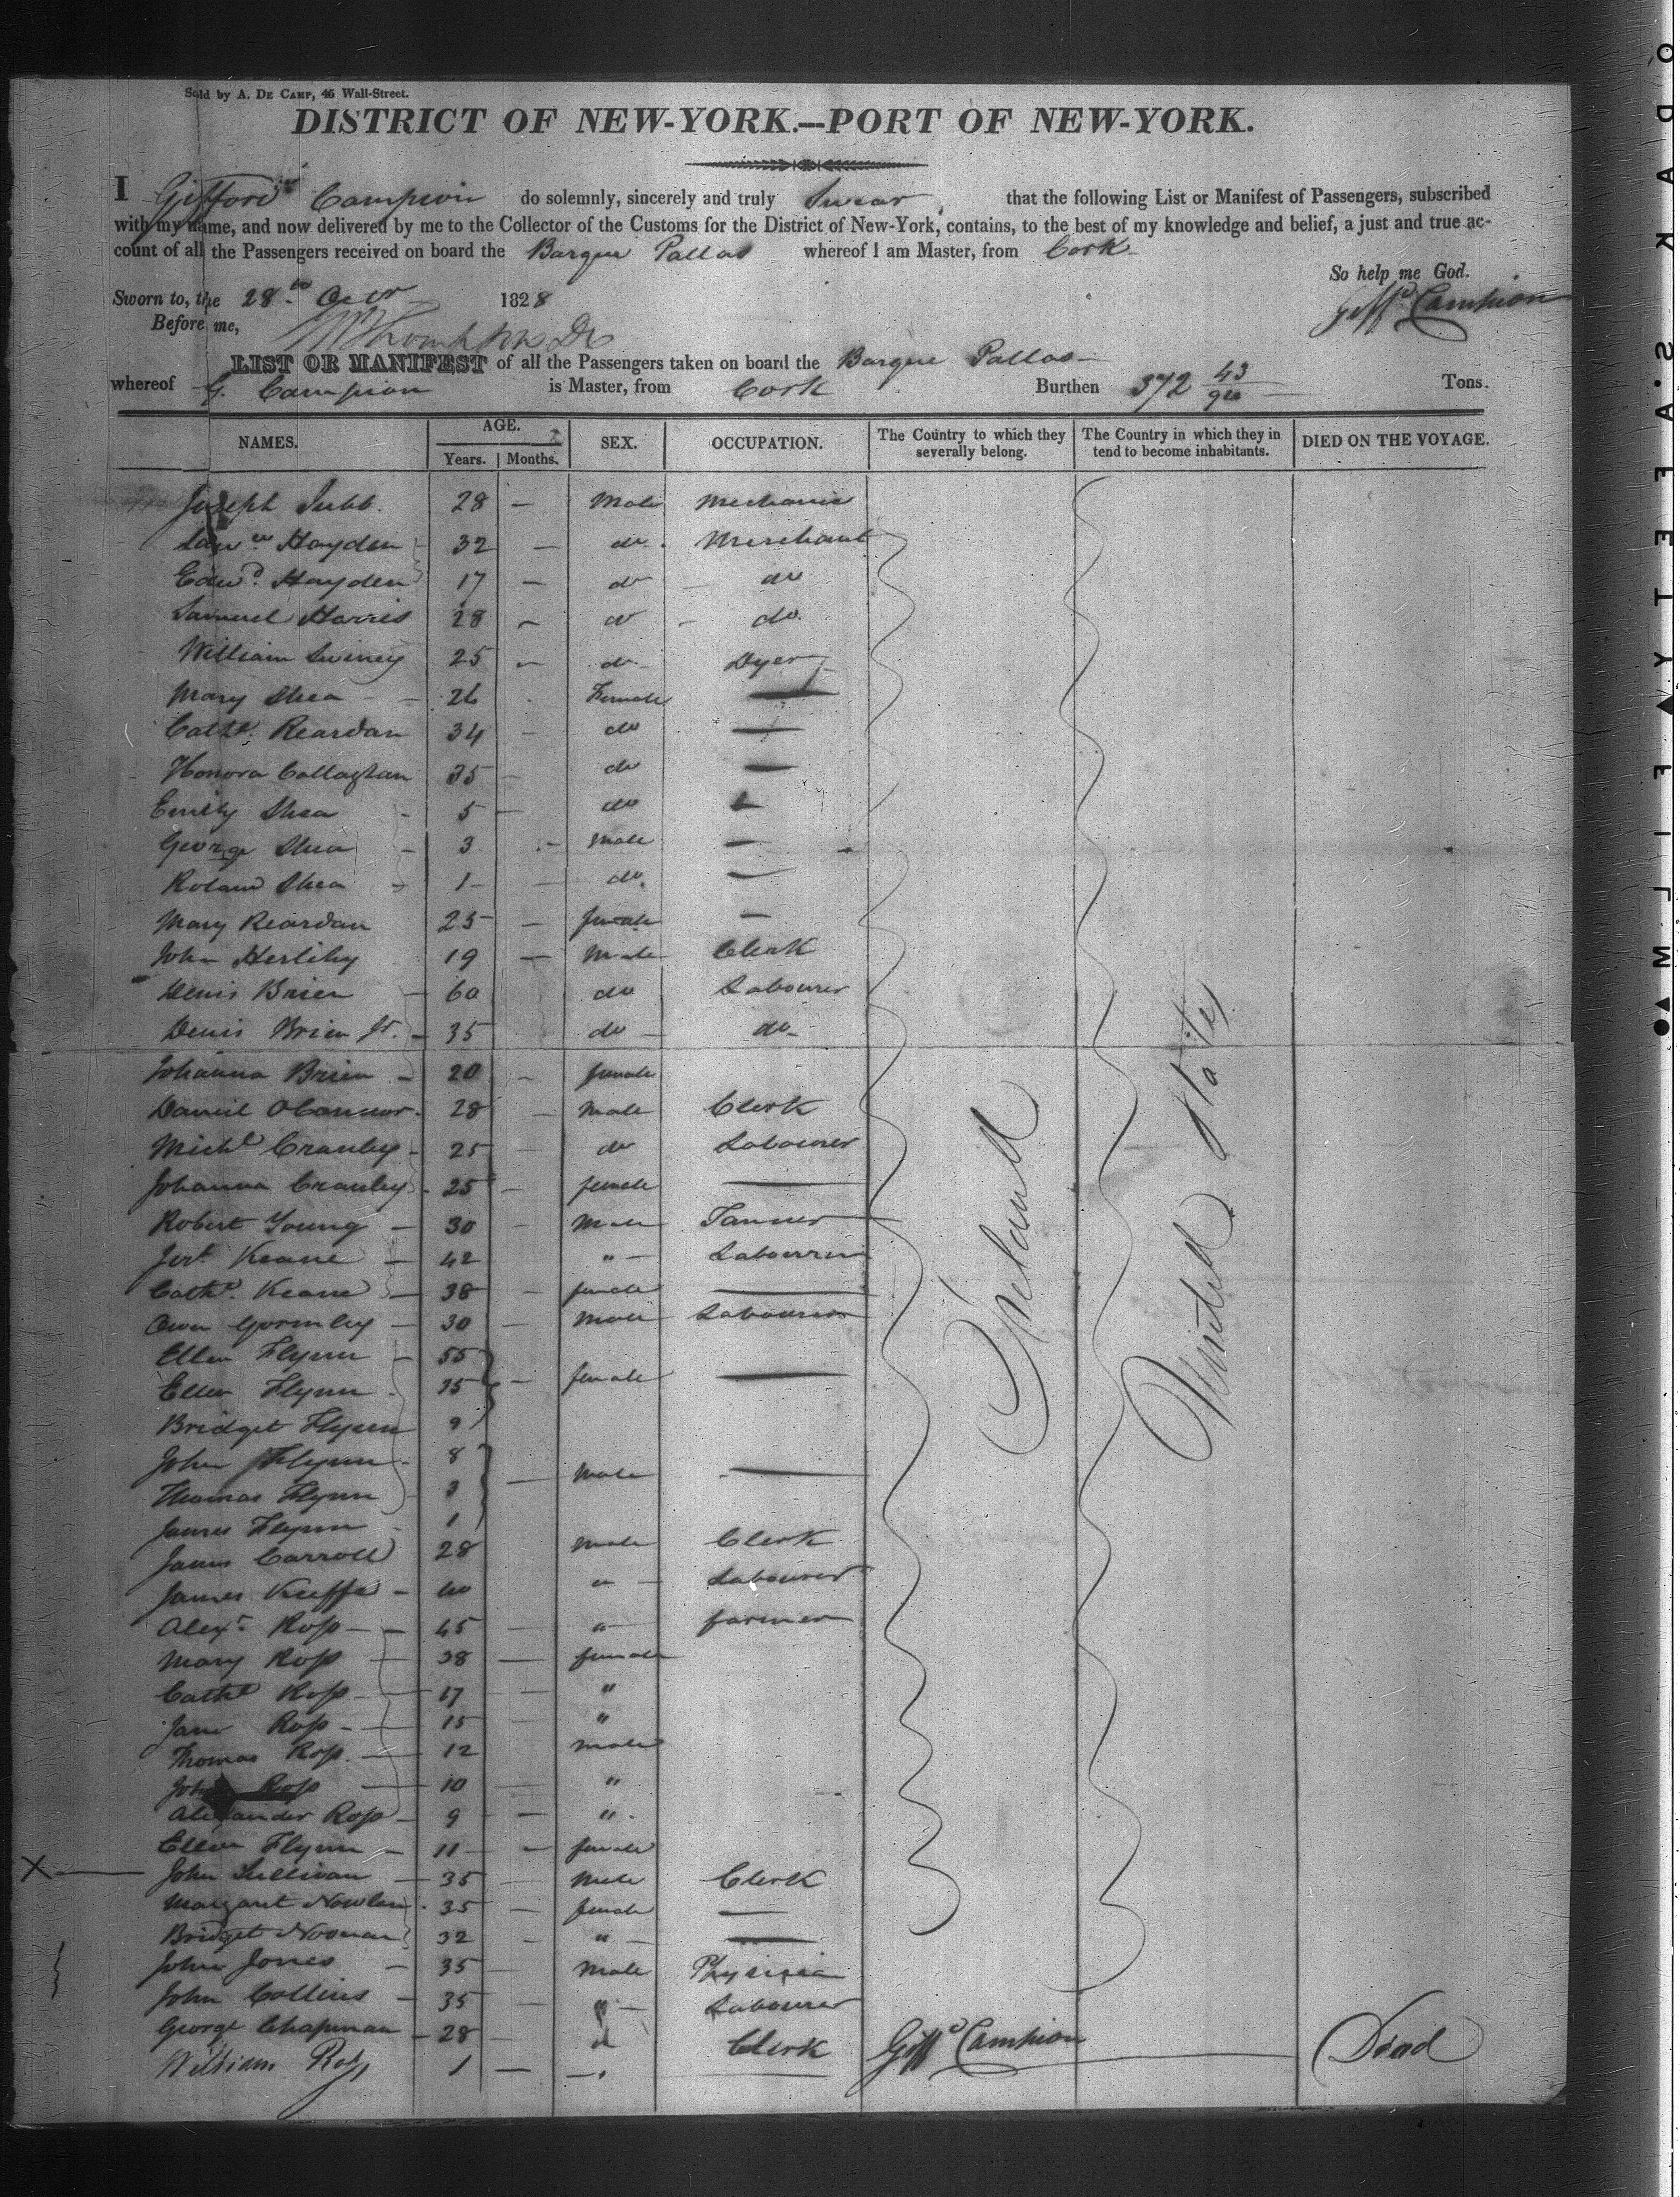 Sold by A. DE CAMP, 46 Wall-Street.
DISTRICT OF NEW-YORK.—PORT OF NEW-YORK.
I Gifford Campion do solemnly, sincerely and truly Swear that the following List or Manifest of Passengers, subscribed
with my name, and now delivered by me to the Collector of the Customs for the District of New-York, contains, to the best of my knowledge and belief, a just and true ac-
count of all the Passengers received on board the Barque Pallas whereof I am Master, from Cork
So help me God.
Sworn to, the 28th Octr 1828 Giffd Campion
Before me,
LIST OR MANIFEST of all the Passengers taken on board the Barque Pallas
whereof G. Campion is Master, from Cork Burthen 372 43/90 Tons.
NAMES. AGE. Years. Months. SEX. OCCUPATION. The Country to which they severally belong. The Country in which they in tend to become inhabitants. DIED ON THE VOYAGE.
Joseph Jubb. 28 — Male Mechanic
Lawce Hayden 32 — do. Merchant
Edwd. Hayden 17 — do do
Samuel Harris 28 — do do.
William Swiney 25 — do Dyer
Mary Shea 26 Female —
Cathe. Reardan 34 — do —
Honora Callaghan 35 — do —
Emily Shea 5 — do —
George Shea 3 — Male —
Roland Shea 1 — do. —
Mary Reardan 25 — female —
John Herlihy 19 — Male Clerk
Denis Brien 60 do Labourer
Denis Brien Jr. 35 do do
Johanna Brien 20 — female
Daniel OConnor 28 — Male Clerk
Michl Cranley 25 — do Labourer
Johanna Cranley 25 — female —
Robert Young 30 — Male Tanner
Jert. Keane 42 " Labourer
Cathe. Keane 38 — female —
Owen Gormley 30 — Male Labourer
Ellen Flynn 55
Ellen Flynn 35 — female —
Bridget Flynn 9
John Flynn 8
Thomas Flynn 3 — Male —
James Flynn 1
James Carroll 28 Male Clerk
James Keeffe 40 " Labourer
Alexr. Ross 45 — " farmer
Mary Ross 38 — female
Cathe Ross 17 — "
Jane Ross 15 — "
Thomas Ross 12 — Male
John Ross 10 — "
Alexander Ross 9 — "
Ellen Flynn 11 — female
X John Sullivan 35 — Male Clerk
Margaret Nowlan 35 — female —
Bridget Noonan 32 — " —
John Jones 35 — Male Physician
John Collins 35 — " Labourer
George Chapman 28 — Clerk
William Ross 1 — Dead
Ireland
United States
Giffd Campion